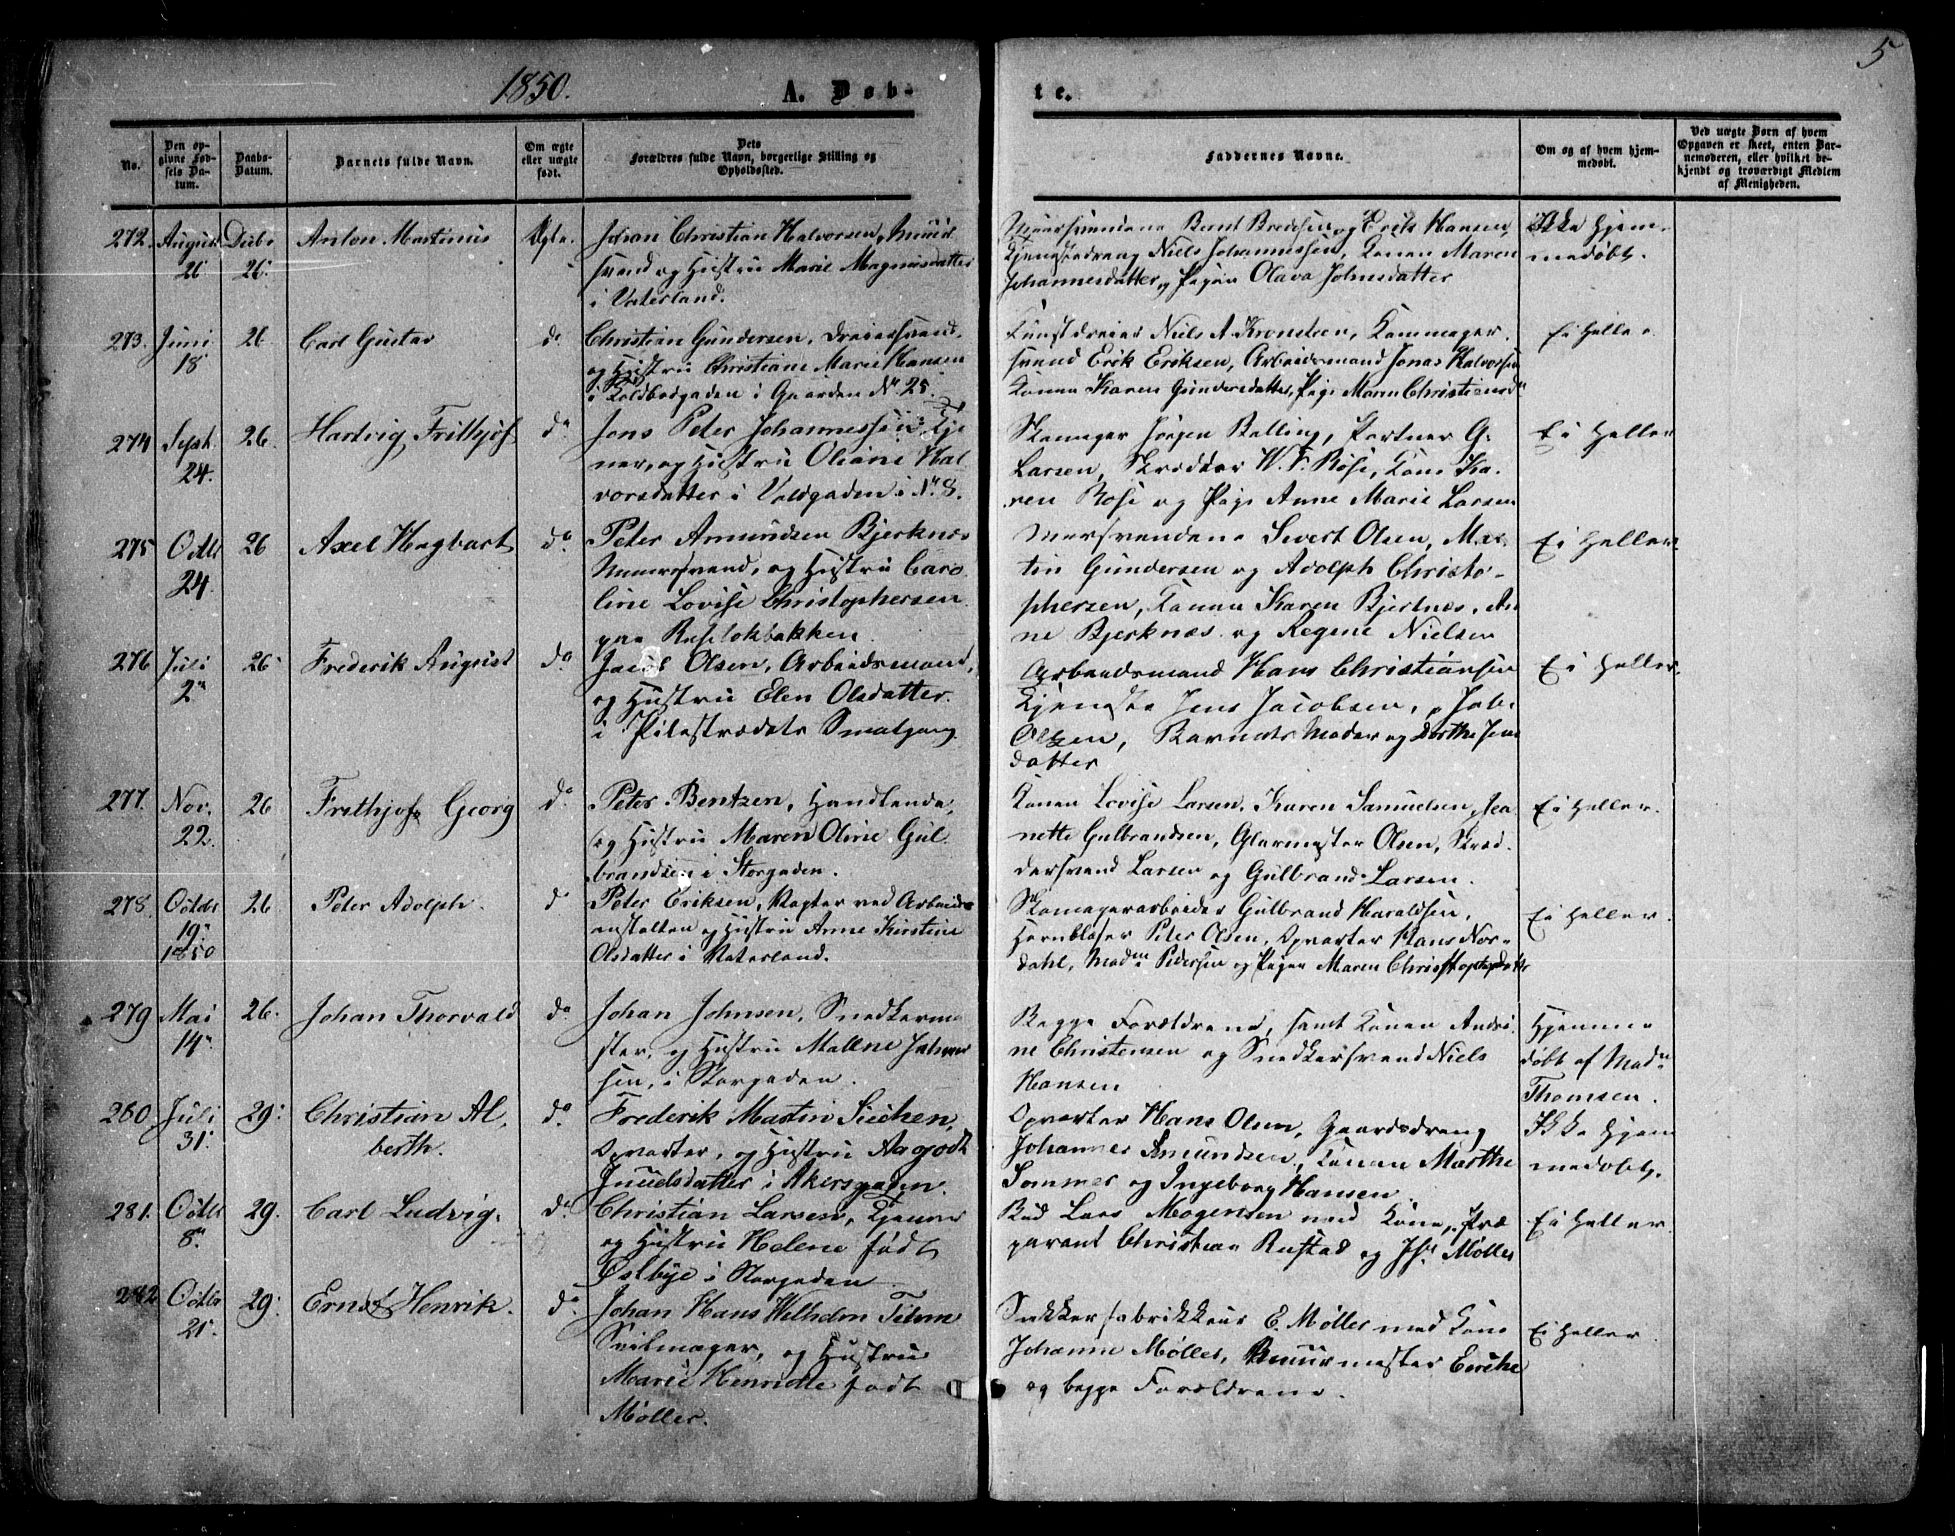 1850.
A. Døb-
te.
5
No.
Den op-
givne Fød-
sels Da-
tum.
Daabs-
Datum.
Barnets fulde Navn.
Om ægte
eller uægte
født.
Dets
Forældres fulde Navn, borgerlige Stilling og
Opholdssted.
Faddernes Navne.
Om og af hvem hjem-
medøbt.
Ved uægte Børn af hvem
Opgaven er skeet, enten Bar-
nemoderen, eller hvilket be-
kjendt og troværdigt Medlem
af Menigheden.
272. August
26
Decbr
26.
Anton Martinus
Ægte.
Johan Christian Halvorsen, Muur-
svend og Hustru Marie Magnusdatter
i Vaterland.
Muursvendene Bernt Bredesen og Erik Hansen,
Tjenestedreng Niels Johannessen, Konen Maren
Johannesdatter og Pigen Olava Johnsdatter
Ikke hjem-
medøbt.
273. Juni
18
26
Carl Gustav
do
Christian Gundersen, Dreiersvend,
og Hustru Christiane Marie Hansen
i Voldbodgaden i Gaarden No 25.
Kunstdreier Niels A. Kronsteen, Skomager-
svend Erik Eriksen, Arbeidsmand Jonas Halvorsen
Konen Karen Gundersdatter, Pige Maren Christiansdr
Ei heller
274 Septr
24.
26.
Hartvig Frithjof
do
Jens Peter Johannessen, Tje-
ner, og Hustru Oliane Hal-
vorsdatter i Voldgaden i No 8.
Skomager Jørgen Balling, Portner G.
Larsen, Skrædder W. F. Rose, Kone Ka-
ren Rose og Pige Anne Marie Larsen
Ei heller
275 Octbr
24.
26
Axel Hagbart
do.
Peter Amundsen Bjerknes
Muursvend, og Hustru Caro-
line Lovise Christophersen
paa Ruseløkbakken.
Muursvendene Sivert Olsen, Mar-
tin Gundersen og Adolph Christo-
phersen, Konen Karen Bjerknes, An-
ne Bjerknæs og Regine Nielsen
Ei heller
276 Juli
2n
26.
Frederik August
do
Jacob Olsen, Arbeidsmand,
og Hustru Elen Olsdatter
i Pilestrædets Smalgang
Arbeidsmand Hans Christiansen
Tjeneste Jens Jacobsen, Jak.
Olsen, Barnets Moder og Dorthe Jens
datter
Ei heller
277. Nov.
22.
26
Frithjof Georg
do
Peter Bentzen, Handlende,
og Hustru Maren Oline Gul-
brandsen i Storgaden.
Konen Lovise Larsen, Karen Samuelsen, Jea-
nette Gulbrandsen, Glarmester Olsen, Skræd-
dersvend Larsen og Gulbrand Larsen.
Ei heller.
278. Octbr
19n
1850
26.
Peter Adolph.
do
Peter Eriksen, Vægter ved Arbeids-
anstalten og Hustru Anne Kirstine
Olsdatter i Vaterland.
Skomagerarbeider Gulbrand Haraldsen,
Hornblæser Peter Olsen, Opvarter Hans Nor-
dahl, Madm Pedersen og Pigen Maren Christophersdatter
Ei heller.
279 Mai
14n
26.
Johan Thorvald
do
Johan Johnsen, Snedkerme-
ster, og Hustru Mallene Johan-
sen, i Storgaden.
Begge Forældrene, samt Konen Andri-
ne Christensen og Snedkersvend Niels
Hansen
Hjemme-
døbt af Madm
Thomsen.
280 Juli
31.
29.
Christian Al-
berth.
do.
Frederik Martin Siechen,
Opvarter, og Hustru Aagodt
Juulsdatter i Akersgaden.
Opvarter Hans Olsen, Gaardsdreng
Johannes Amundsen, Konen Marthe
Sommer og Ingeborg Hansen.
Ikke hjem
medøbt.
281. Octbr
8n
29.
Carl Ludvig.
do
Christian Larsen, Tjener
og Hustru Helene født
Østbye i Storgaden
Bud Lars Mogensen med Kone, Præ-
parant Christian Rustad og Jfr. Møller
Ei heller
282 Octbr
21.
29.
Ernst Henrik.
do
Johan Hans Wilhelm
Seilmager, og Hustru
Marie Henriette født
Møller.
Sukkerfabrikkeur E. Møller med Kone
Johanne Møller, Muurmester
og begge Forældrene.
Ei heller.